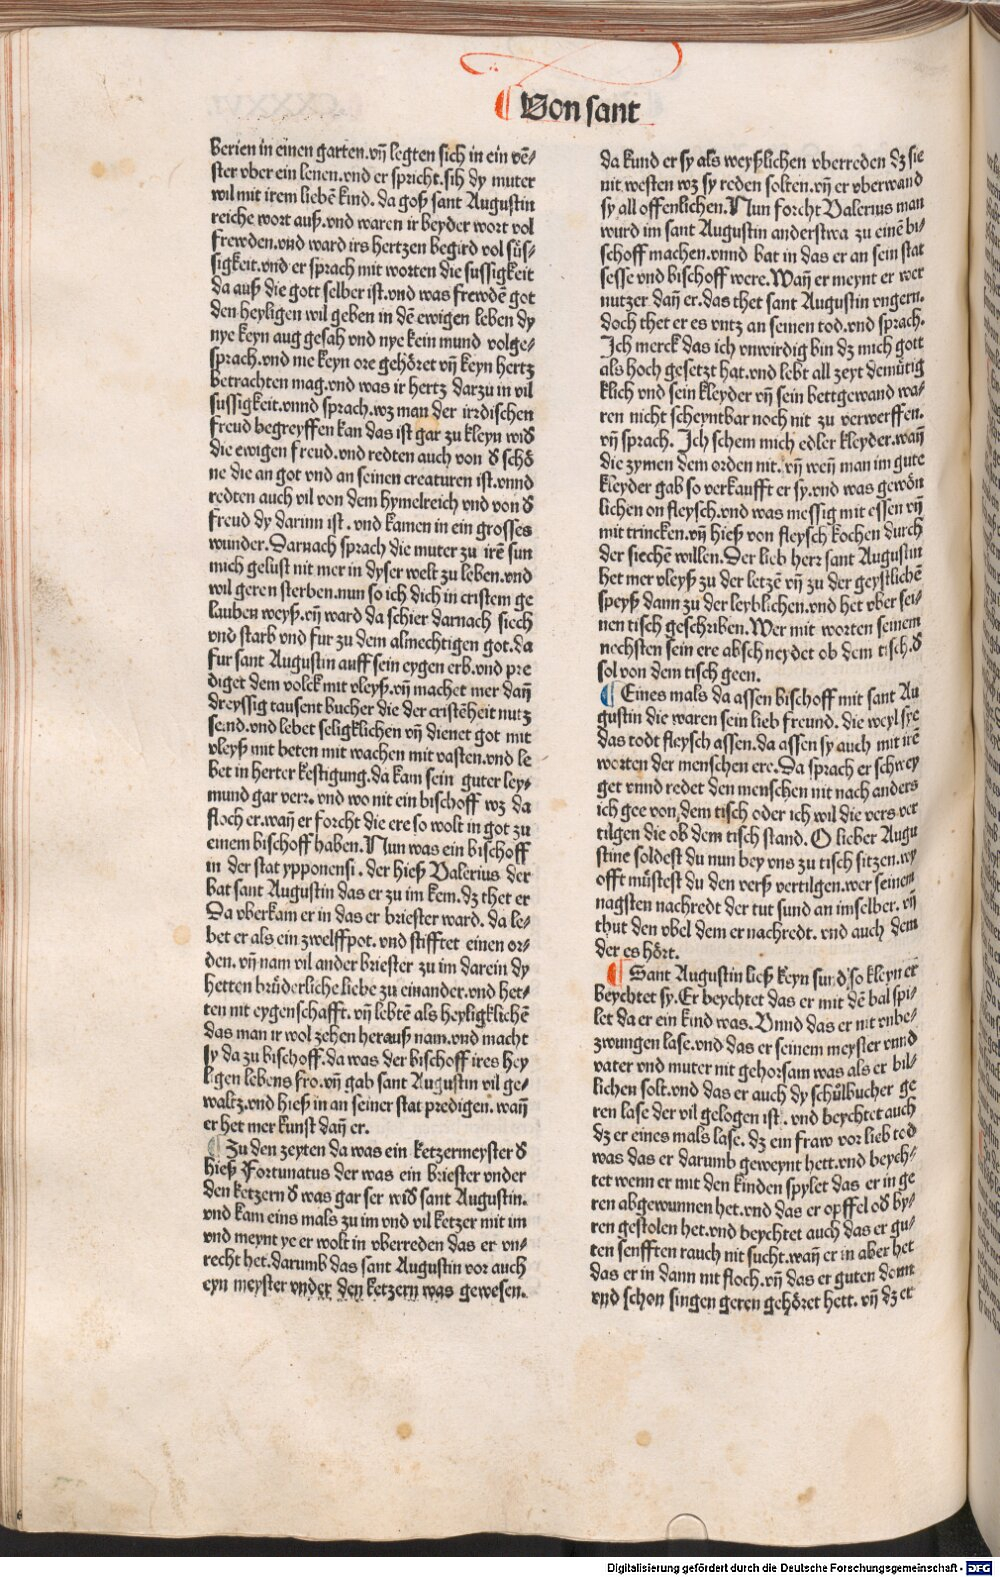 Von sant
berien in einen garten.vñ legten sich in ein vē⸗
ster vber ein lenen.vnd er spricht.sih dy muter
wil mit irem liebē kind. da goß sant Augustin
reiche wort auß.vnd waren ir beyder wort vol
frewden.vnd ward irs hertzen begird vol süs⸗
sigkeit.vnd er sprach mit worten die sussigkeit
da auß die gott selber ist.vnd was frewdē got
den heyligen wil geben in dē ewigen leben dy
nye keyn aug gesah vnd nye kein mund volge⸗
sprach.vnd nie keyn ore gehöret vñ keyn hertz
betrachten mag.vnd was ir hertz darzu in vil
sussigkeit.vnnd sprach.wz man der irrdischen
freud begreyffen kan das ist gar zu kleyn wid̄
die ewigen freud.vnd redten auch von d̄ schö
ne die an got vnd an seinen creaturen ist.vnnd
redten auch vil von dem hymelreich vnd von d̄
freud dy darinn ist. vnd kamen in ein grosses
wunder.Darnach sprach die muter zu irē sun
mich gelust nit mer in dyser welt zu leben.vnd
wil geren sterben.nun so ich dich in cristem ge
lauben weyß.vñ ward da schier darnach siech
vnd starb vnd fur zu dem almechtigen got.da
fur sant Augustin auff sein eygen erb.vnd pre
diget dem volck mit vleyß.vñ machet mer dañ
dreyssig tausent bucher die der cristēheit nutz
send.vnd lebet seligklichen vñ dienet got mit
vleyß mit beten mit wachen mit vasten.vnd le
bet in herter kestigung.da kam sein guter ley⸗
mund gar verr. vnd wo nit ein bischoff wz da
floch er.wañ er forcht die ere so wolt in got zu
einem bischoff haben.Nun was ein bischoff
in der stat ypponensi. der hieß Valerius der
bat sant Augustin das er zu im kem.dz thet er
Da vberkam er in das er briester ward. da le⸗
bet er als ein zwelffpot. vnd stifftet einen or⸗
den. vñ nam vil ander briester zu im darein dy
hetten brüderliche liebe zu einander.vnd het⸗
ten nit eygenschafft. vñ lebtē als heyligklichē
das man ir wol zehen herauß nam.vnd macht
sy da zu bischoff.da was der bischoff ires hey
ligen lebens fro.vñ gab sant Augustin vil ge⸗
waltz.vnd hieß in an seiner stat predigen. wañ
er het mer kunst dañ er.
Zu den zeyten da was ein ketzermeyster d̄
hieß Fortunatus der was ein briester vnder
den ketzern d̄ was gar ser wid̄ sant Augustin.
vnd kam eins mals zu im vnd vil ketzer mit im
vnd meynt ye er wolt in vberreden das er vn⸗
recht het.darumb das sant Augustin vor auch
eyn meyster vnder den ketzern was gewesen.
da kund er sy als weyßlichen vberreden dz sie
nit westen wz sy reden solten.vñ er vberwand
sy all offenlichen.Nun forcht Valerius man
wurd im sant Augustin anderstwa zu einē bi⸗
schoff machen.vnnd bat in das er an sein stat
sesse vnd bischoff were.Wañ er meynt er wer
nutzer dañ er.das thet sant Augustin vngern.
doch thet er es vntz an seinen tod.vnd sprach.
Ich merck das ich vnwirdig bin dz mich gott
als hoch gesetzt hat.vnd lebt all zeyt demütig
klich vnd sein kleyder vñ sein bettgewand wa⸗
ren nicht scheyntbar noch nit zu verwerffen.
vñ sprach. Ich schem mich edler kleyder.wañ
die zymen dem orden nit. vñ weñ man im gute
kleyder gab so verkaufft er sy.vnd was gewön
lichen on fleysch.vnd was messig mit essen vñ
mit trincken.vñ hieß von fleysch kochen durch
der siechē willen.Der lieb herr sant Augustin
het mer vleyß zu der letzē vñ zu der geystlichē
speyß dann zu der leyblichen.vnd het vber sei⸗
nen tisch geschriben.Wer mit worten seinem
nechsten sein ere abschneydet ob dem tisch.d̄
sol von dem tisch geen.
Eines mals da assen bischoff mit sant Au
gustin die waren sein lieb freund. die weyl sye
das todt fleysch assen.da assen sy auch mit irē
worten der menschen ere.Da sprach er schwey
get vnnd redet den menschen nit nach anders
ich gee von dem tisch oder ich wil die vers ver
tilgen die ob dem tisch stand. O lieber Augu
stine soldest du nun bey vns zu tisch sitzen.wy
offt müstest du den verß vertilgen.wer seinem
nagsten nachredt der tut sund an imselber. vñ
thut den vbel dem er nachredt. vnd auch dem
der es hört.
Sant Augustin ließ keyn sund so kleyn er
beychtet sy.Er beychtet das er mit dē bal spi⸗
let da er ein kind was. Vnnd das er nit vnbe⸗
zwungen lase.vnd das er seinem meyster vnnd
vater vnd muter nit gehorsam was als er bil⸗
lichen solt.vnd das er auch dy schülbucher ge
ren lase der vil gelogen ist. vnd beychtet auch
dz er eines mals lase. dz ein fraw vor lieb tod
was das er darumb geweynt hett.vnd beych⸗
tet wenn er mit den kinden spylet das er in ge
ren abgewunnen het.vnd das er opffel od̄ by⸗
ren gestolen het.vnd beychtet auch das er gu⸗
ten senfften rauch nit sucht.wañ er in aber het
das er in dann nit floch.vñ das er guten donn
vnd schon singen geren gehöret hett. vñ dz er
Digitalisierung gefördert durch die Deutsche Forschungsgemeinschaft - DFG